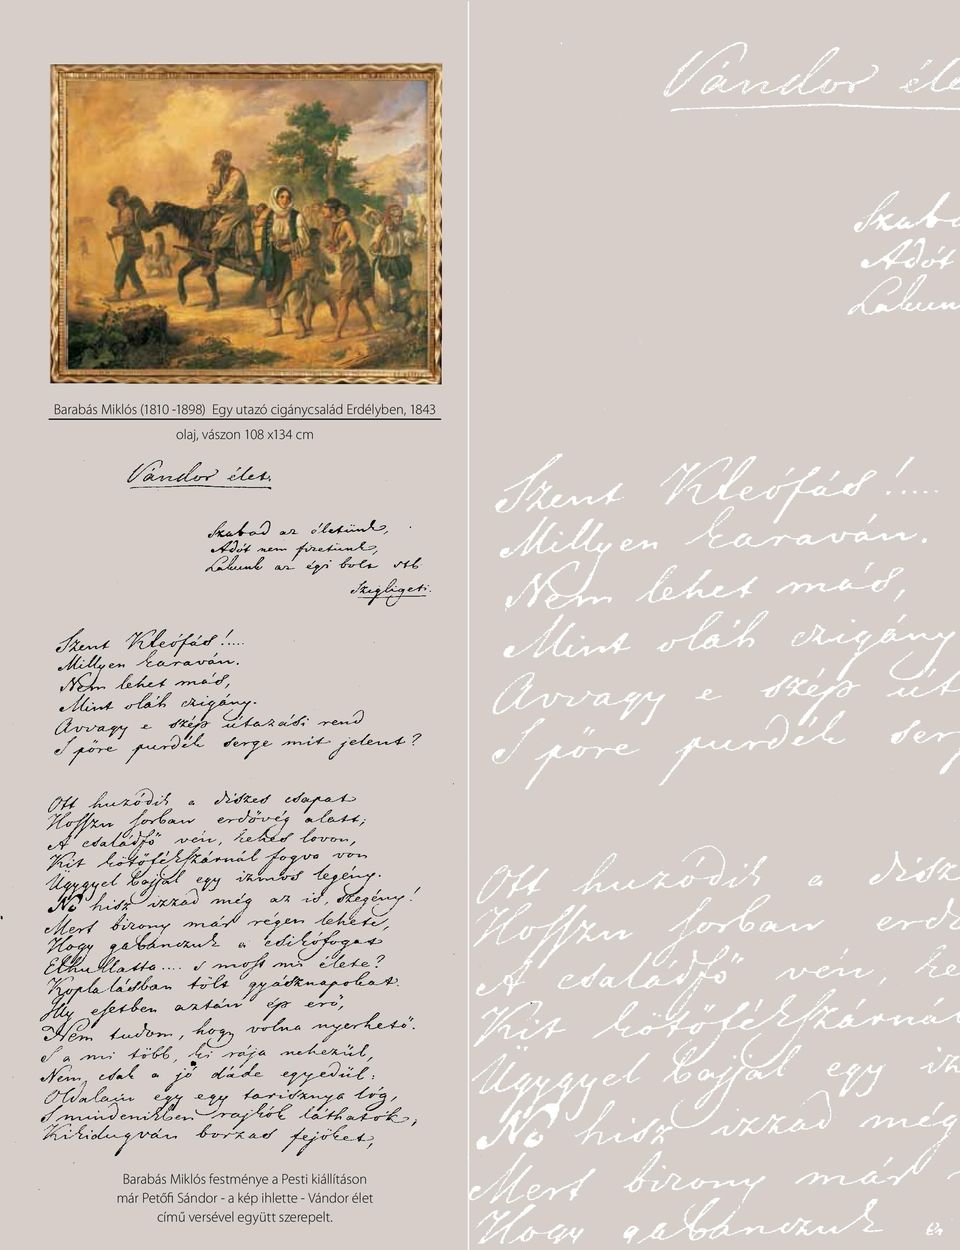 Barabás Miklós (1810 -1898) Egy utazó cigánycsalád Erdélyben, 1843
olaj, vászon 108 x134 cm
Vándor élet.
Szabad az életünk,
Adót nem fizetünk,
Lakunk az égi bolt stb
Szigligeti.
Szent Kleófás!.....
Millyen karaván.
Nem lehet más,
Mint oláh czigány.
Avvagy e szép útazási rend
S pőre purdék serge mit jelent?
Ott huzódik a díszes csapat
Hosszu sorban erdővég alatt;
A családfő vén, kehes lovon,
Kit kötőfékszárnál fogva von
Ügygyel bajjal egy izmos legény.
No hisz izzad még az is, szegény!
Mert bizony már régen lehete,
Hogy gabonczuk a csikófogat
Elhullatta.... s most mi élete?
Koplalásban tölt gyásznapokat.
Illy esetben aztán ép erő,
Nem tudom, hogy volna nyerhető.
S a mi több, ki rája nehezül,
Nem csak a jó dáde egyedül:
Oldalain egy egy tarisznya lóg,
S mindenikben rajkók láthatók,
Kikidugván borzas fejöket,
Barabás Miklós festménye a Pesti kiállításon
már Petőfi Sándor - a kép ihlette - Vándor élet
című versével együtt szerepelt.
Vándor éle
Szaba
Adót
Lakun
Szent Kleófás!.....
Millyen karaván.
Nem lehet más,
Mint oláh czigány
Avvagy e szép út
S pőre purdék serg
Ott huzódik a dísz
Hosszu sorban erdő
A családfő vén, ke
Kit kötőfékszárnál
Ügygyel bajjal egy iz
No hisz izzad még
Mert bizony már r
Hogy gabonczuk